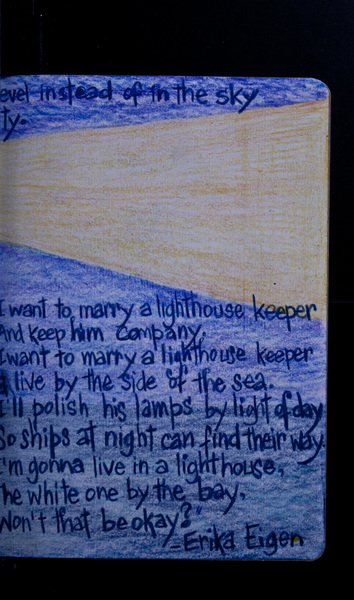 evel instead of in the sky
ty.
I want to marry a lighthouse keeper
And keep him company.
I want to marry a lighthouse keeper
& live by the side of the sea.
I'll polish his lamps by light of day
So ships at night can find their way.
I'm gonna live in a lighthouse,
The white one by the bay,
Won't that be okay?"
-Erika Eigen